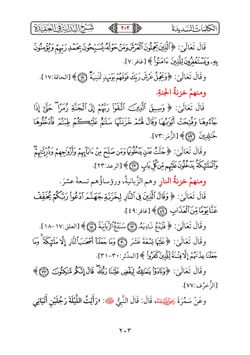 الكلمات السديدة ٢٠٣ شرح البداية في العقيدة
قال تعالى: ﴿الَّذِينَ يَحْمِلُونَ الْعَرْشَ وَمَنْ حَوْلَهُ يُسَبِّحُونَ بِحَمْدِ رَبِّهِمْ وَيُؤْمِنُونَ
بِهِ وَيَسْتَغْفِرُونَ لِلَّذِينَ آمَنُوا﴾ [غافر: ٧].
وقال تعالى: ﴿وَيَحْمِلُ عَرْشَ رَبِّكَ فَوْقَهُمْ يَوْمَئِذٍ ثَمَانِيَةٌ ۝١٧﴾ [الحاقة: ١٧].
ومنهم خزنة الجنة.
قال تعالى: ﴿وَسِيقَ الَّذِينَ اتَّقَوْا رَبَّهُمْ إِلَى الْجَنَّةِ زُمَرًا حَتَّى إِذَا
جَاءُوهَا وَفُتِحَتْ أَبْوَابُهَا وَقَالَ لَهُمْ خَزَنَتُهَا سَلَامٌ عَلَيْكُمْ طِبْتُمْ فَادْخُلُوهَا
خَالِدِينَ ۝٧٣﴾ [الزمر: ٧٣].
وقال تعالى: ﴿جَنَّاتُ عَدْنٍ يَدْخُلُونَهَا وَمَنْ صَلَحَ مِنْ آبَائِهِمْ وَأَزْوَاجِهِمْ وَذُرِّيَّاتِهِمْ
وَالْمَلَائِكَةُ يَدْخُلُونَ عَلَيْهِمْ مِنْ كُلِّ بَابٍ ۝٢٣﴾ [الرعد: ٢٣].
ومنهم خزنة النار وهم الزبانية، ورؤساؤهم تسعة عشر.
قال تعالى: ﴿وَقَالَ الَّذِينَ فِي النَّارِ لِخَزَنَةِ جَهَنَّمَ ادْعُوا رَبَّكُمْ يُخَفِّفْ
عَنَّا يَوْمًا مِنَ الْعَذَابِ ۝٤٩﴾ [غافر: ٤٩].
وقال تعالى: ﴿فَلْيَدْعُ نَادِيَهُ ۝١٧ سَنَدْعُ الزَّبَانِيَةَ ۝١٨﴾ [العلق: ١٧-١٨].
وقال تعالى: ﴿عَلَيْهَا تِسْعَةَ عَشَرَ ۝٣٠ وَمَا جَعَلْنَا أَصْحَابَ النَّارِ إِلَّا مَلَائِكَةً وَمَا
جَعَلْنَا عِدَّتَهُمْ إِلَّا فِتْنَةً لِلَّذِينَ كَفَرُوا﴾ [المدثر: ٣٠-٣١].
وقال تعالى: ﴿وَنَادَوْا يَا مَالِكُ لِيَقْضِ عَلَيْنَا رَبُّكَ قَالَ إِنَّكُمْ مَاكِثُونَ ۝٧٧﴾
[الزخرف: ٧٧].
وعن سمرة رضي الله عنه قال: قال النبي ﷺ: «رأيت الليلة رجلين أتياني
٢٠٣